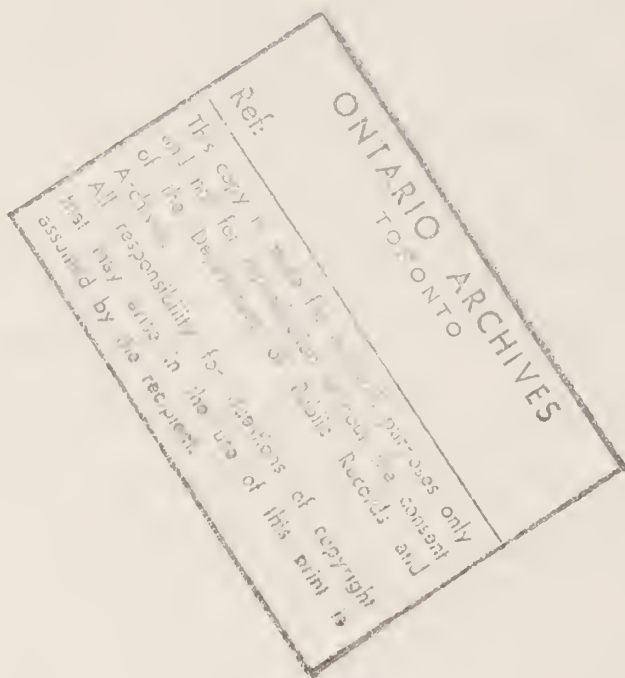 ONTARIO ARCHIVES
TORONTO
Ref:
This copy is made for purposes only
and not for without the consent
of the Department of Public Records and
Archives
All responsibility for questions of copyright
that may arise in the use of this print is
assumed by the recipient.